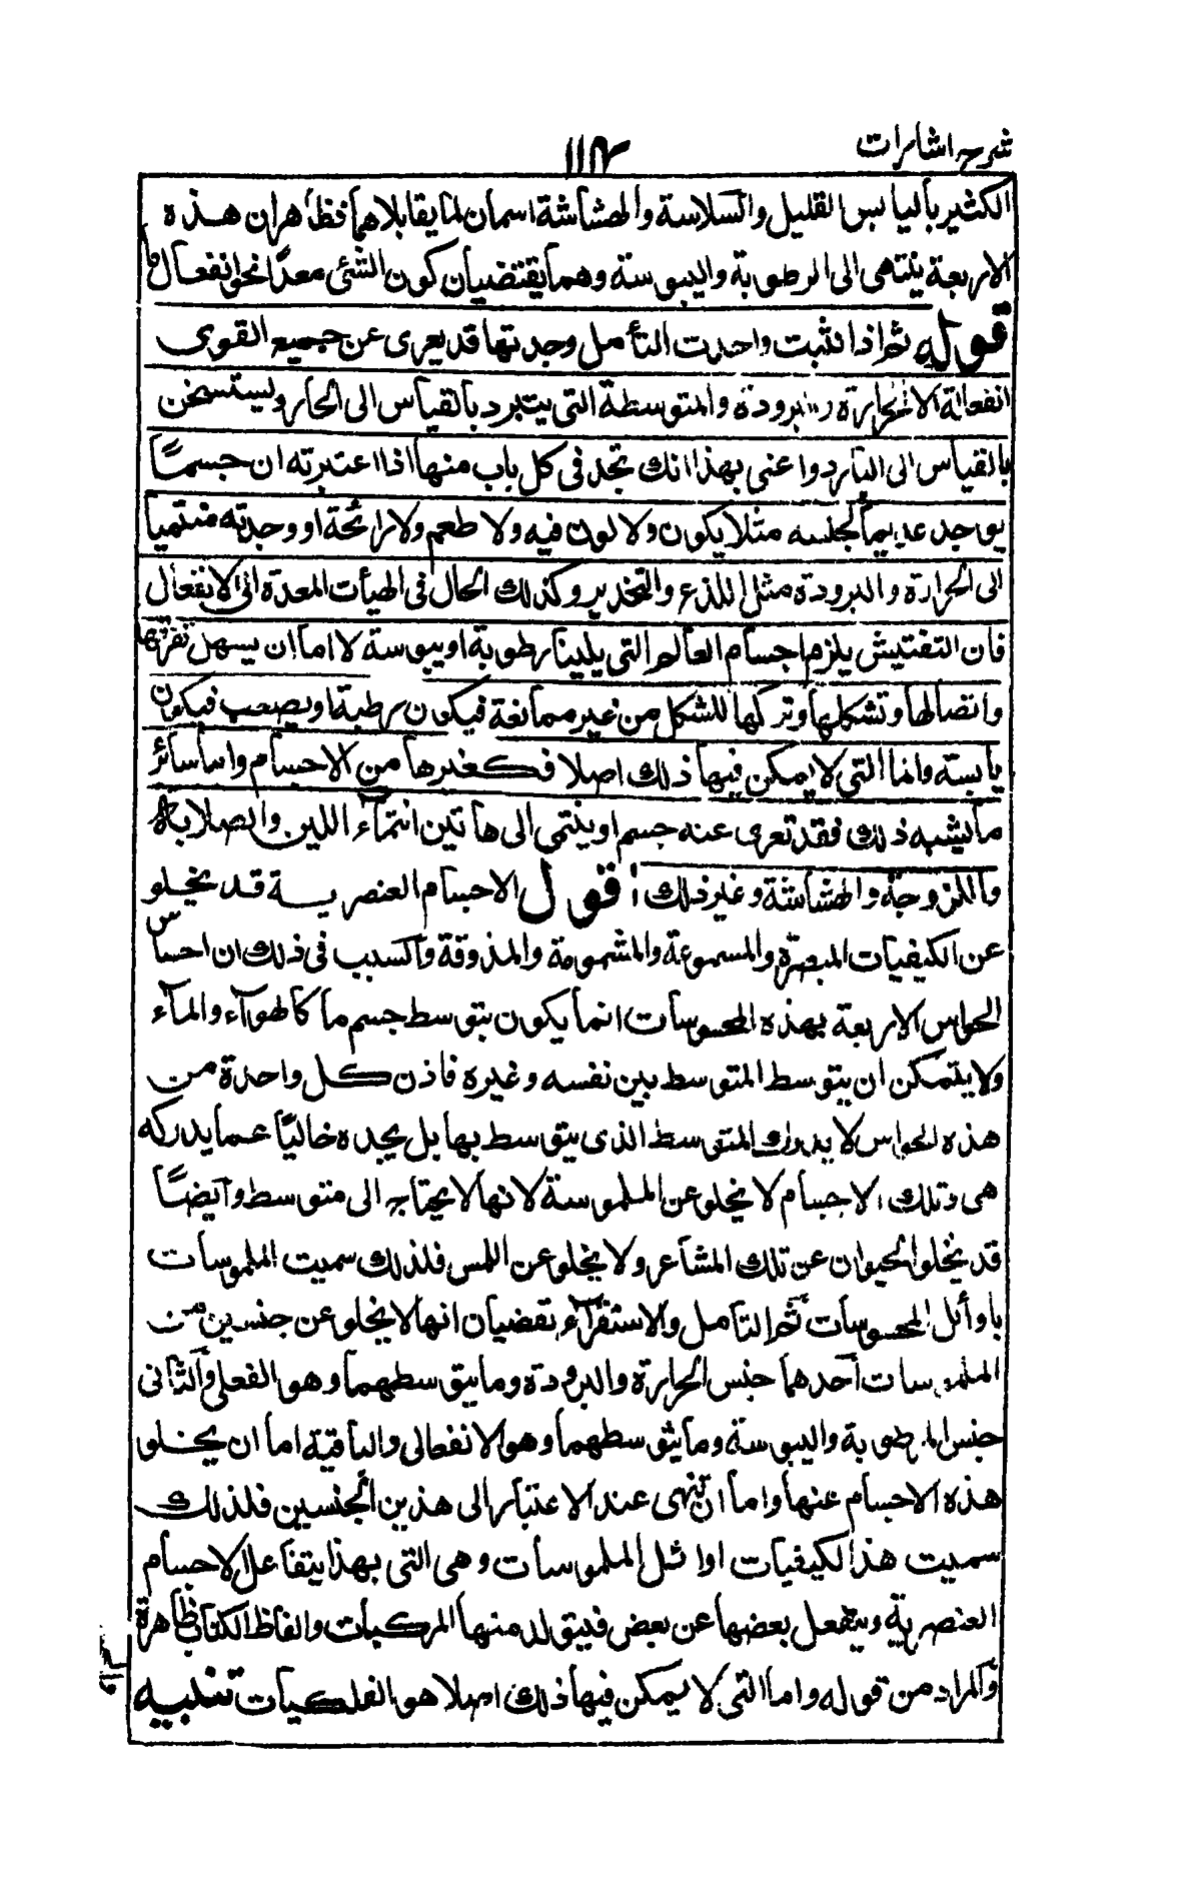 شرح اشارات
١١٤
الكثير باليابس القليل والسلاسة والهشاشة اسمان لما يقابلاهما فظاهر ان هذه
الاربعة ينتهى الى الرطوبة واليبوسة وهما يقتضيان كون الشئ معدّا نحو انفعال ما
قوله ثم اذا فتشت واجدت التأمل وجدتها قد يعرى عن جميع القوى
انفعالة الا الحرارة والبرودة والمتوسطة التى يتبرد بالقياس الى الحار ويستسخن
بالقياس الى البارد واعنى بهذا انك تجد فى كل باب منها اذا اعتبرته ان جسمًا
يوجد عديمًا لجنسه مثلا يكون ولا لون فيه ولا طعم ولا رائحة او وجدته منتميا
الى الحرارة والبرودة مثل اللذع والتخدير وكذلك الحال فى الهيأت المعدة الى الانفعال
فان التفتيش يلزم اجسام العالم التى يلينا رطوبة او يبوسة لا اما ان يسهل تفرقها
واتصالها وتشكلها وتركها للشكل من غير ممانعة فيكون رطبة او يصعب فيكون
يابسة واما التى لا يمكن فيها ذلك اصلا فكغيرها من الاجسام واما سائر
ما يشبه ذلك فقد تعرى عنه جسم او ينتمى الى هاتين انتمآء اللين والصلابة
واللزوجة والهشاشة وغير ذلك اقول الاجسام العنصرية قد يخلو
عن الكيفيات المبصرة والمسموعة والمشمومة والمذوقة والسبب فى ذلك ان احساس
الحواس الاربعة بهذه المحسوسات انما يكون بتوسط جسم ما كالهوآء والمآء
ولا يتمكن ان يتوسط المتوسط بين نفسه وغيره فاذن كل واحدة من
هذه الحواس لا يدرك المتوسط الذى يتوسط بها بل يجده خاليًا عما يدركه
هى وتلك الاجسام لا يخلو عن الملموسة لانها لا يحتاج الى متوسط وايضًا
قد يخلو الحيوان عن تلك المشاعر ولا يخلو عن اللمس فلذلك سميت الملموسات
باوائل المحسوسات ثم التأمل والاستقرآء تقضيان انها لا يخلو عن جنسين من
الملموسات احدهما جنس الحرارة والبرودة وما يتوسطهما وهو الفعلى والثانى
جنس الرطوبة واليبوسة وما يتوسطهما وهو الانفعالى والباقية اما ان يخلو
هذه الاجسام عنها واما ان تنهى عند الاعتبار الى هذين الجنسين فلذلك
سميت هذا لكيفيات اوائل الملموسات وهى التى بهذا يتفاعل الاجسام
العنصرية وينفعل بعضها عن بعض فيتولد منها المركبات والفاظ الكتاب ظاهرة
والمراد من قوله واما التى لا يمكن فيها ذلك اصلا هو الفلكيات تنبيه